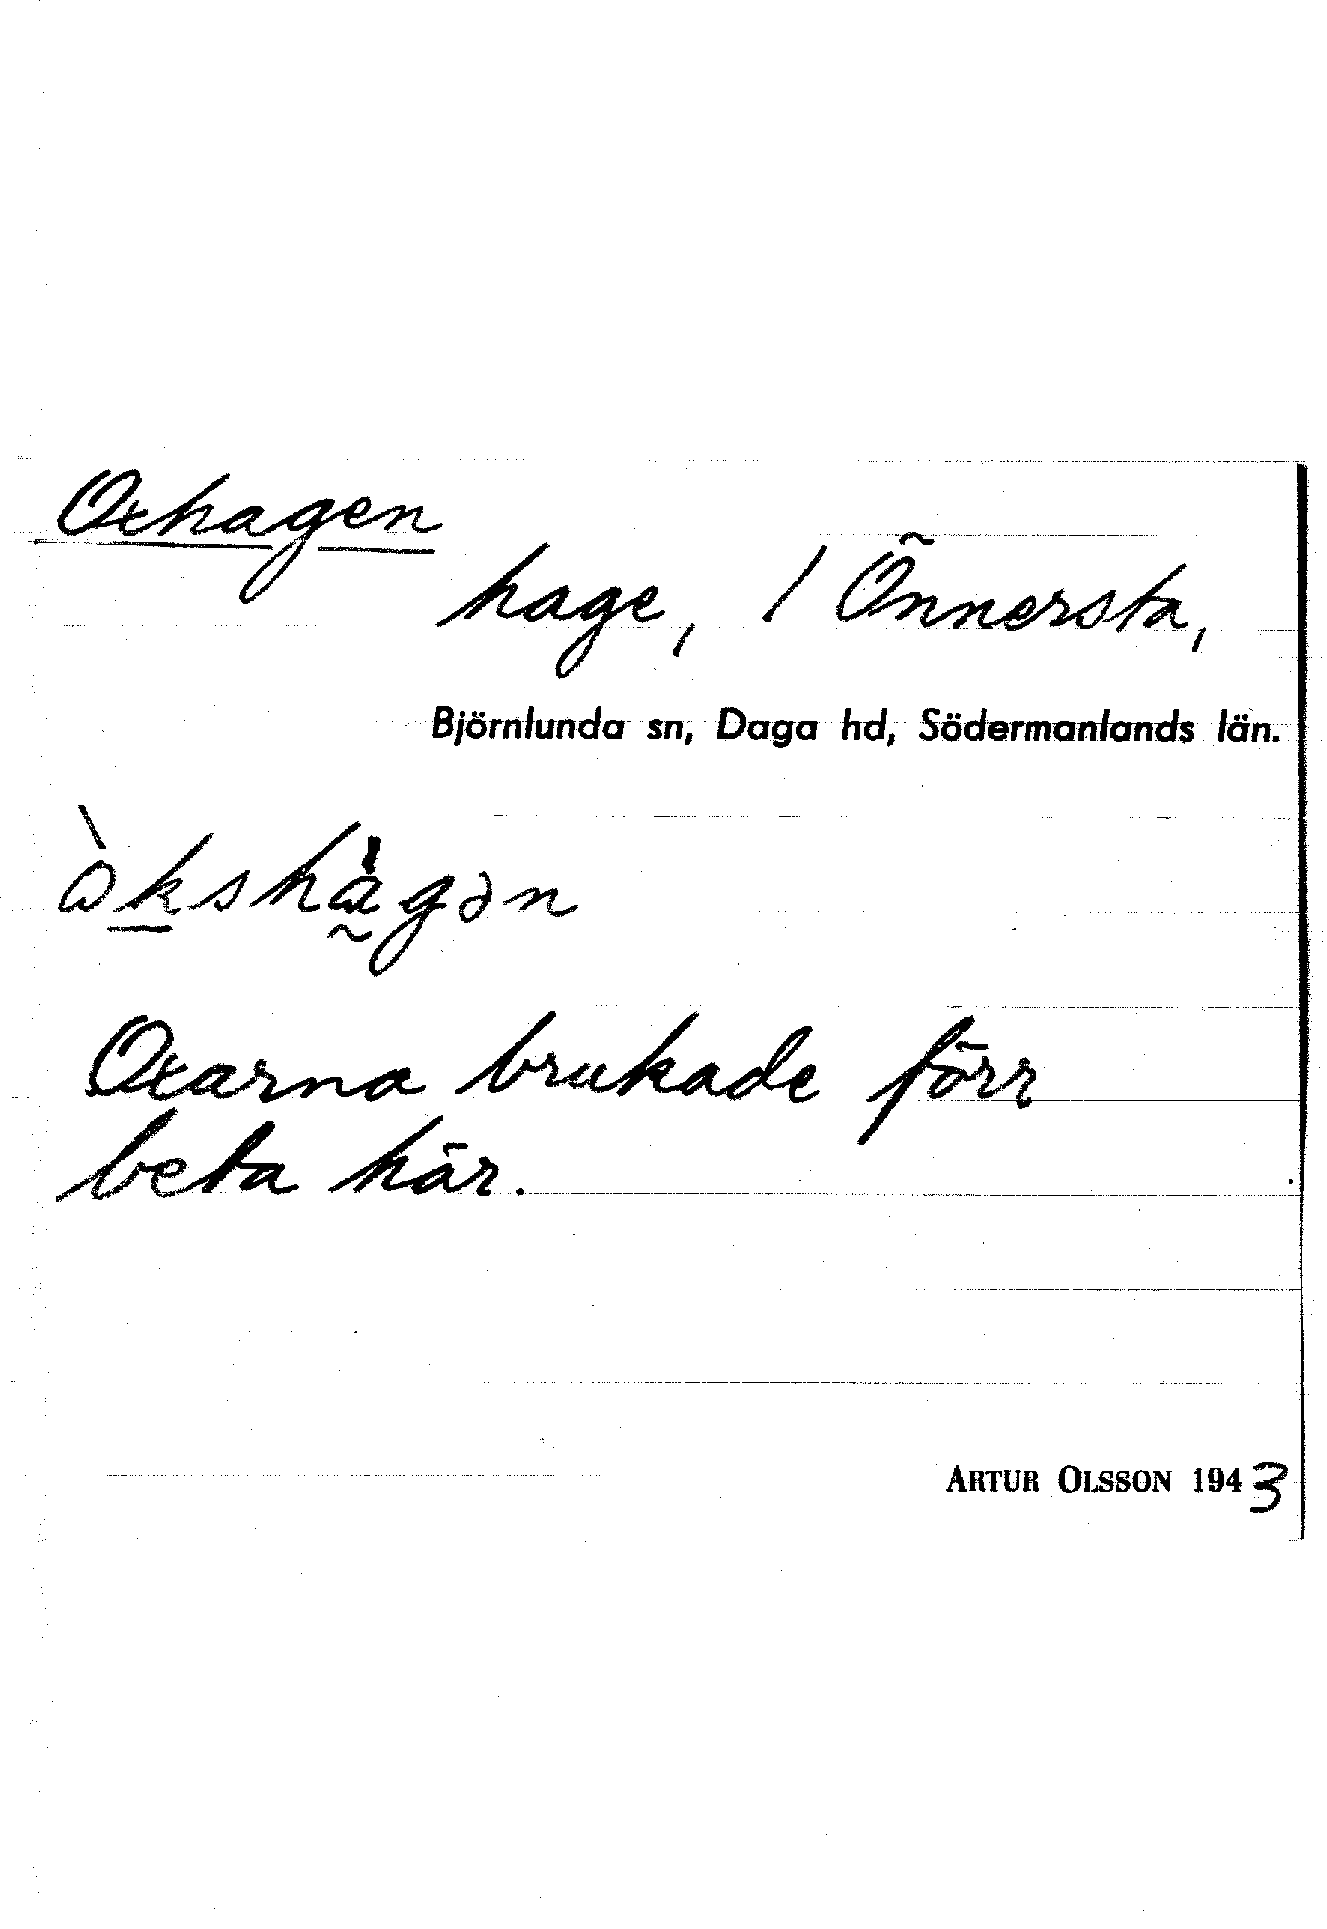 Oxhagen
hage, / Önnersta,
Björnlunda sn, Daga hd, Södermanlands län.
òkshàgən
Oxarna brukade förr
beta här.
ARTUR OLSSON 1943